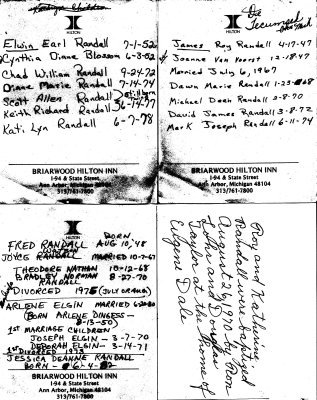 HILTON
Elwin Earl Randall 7-1-52
Cynthia Diane Blossom 6-3-52
Chad William Randall 9-24-72
Diane Marie Randall 7-14-74
Scott Allen Randall
Keith Richard Randall 3-14-77
Kati Lyn Randall 6-7-78
BRIARWOOD HILTON INN
I-94 & State Street
Ann Arbor, Michigan 48104
313/761-7800
Tecumseh
HILTON
James Roy Randall 4-17-47
Joanne Van Voorst 12-18-47
Married July 6, 1967
Dawn Marie Randall 1-23-68
Michael Dean Randall 2-8-70
David James Randall 8-3-72
Mark Joseph Randall 6-11-74
BRIARWOOD HILTON INN
I-94 & State Street
Ann Arbor, Michigan 48104
313/761-7800
HILTON
BORN
FRED RANDALL AUG 10, '48
JOYCE RANDALL MARRIED 10-7-67
THEODORE NATHAN 10-12-68
BRADLEY NORMAN 8-27-70
RANDALL
DIVORCED 1975 (JULY OR AUG)
ARLENE ELGIN MARRIED 6-20-80
(BORN ARLENE DINGESS -
8-13-50)
1ST MARRIAGE CHILDREN
JOSEPH ELGIN - 3-7-70
DEBORAH ELGIN - 3-14-71
1ST DIVORCED 1973
JESSICA DEANNE RANDALL
BORN - 6-4-82
BRIARWOOD HILTON INN
I-94 & State Street
Ann Arbor, Michigan 48104
313/761-7800
Roy and Kathryn
Randall were baptized
August 26, 1970 by Don
Fisher and Douglas
Taylor at the home of
Eugene Dale